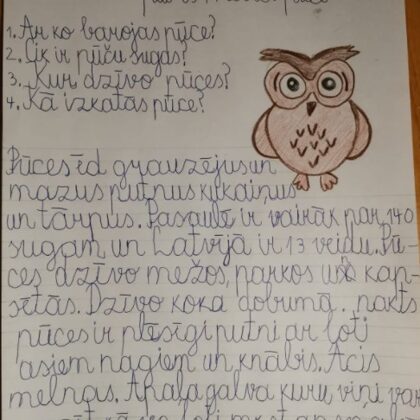 1. Ar ko barojas pūce?
2. Cik ir pūču sugas?
3. Kur dzīvo pūces?
4. Kā izkatās pūce?
Pūces ēd grauzējus un
mazus putnus kukaiņus
un tārpus. Pasaulē ir vairāk par 140
sugam un Latvijā ir 13 veidu. Pū-
ces dzīvo mežos, parkos un kap-
sētās. Dzīvo koka dobumā. nakts
pūces ir plēsīgi putni ar ļoti
asiem nagiem un knābis. Acis
melnas. Apaļa galva kuru viņi var